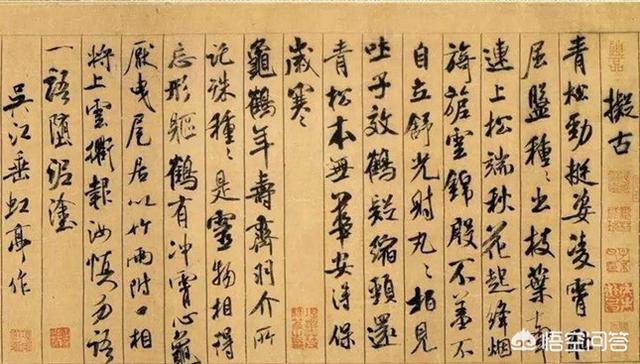 擬古
青松勁挺姿凌霄恥
屈盤種〻出枝葉牽
連上松端秋花起絳烟
旖旎雲錦殷不羞不
自立舒光射丸〻栢見
吐子效鶴疑縮頸還
青松本無華安得保
歲寒
龜鶴年壽齊羽介所
託殊種〻是靈物相得
忘形軀鶴有冲霄心龜
厭曳尾居以竹兩附口相
將上雲衢報汝慎勿語
一語墮泥塗
吳江垂虹亭作
悟空问答